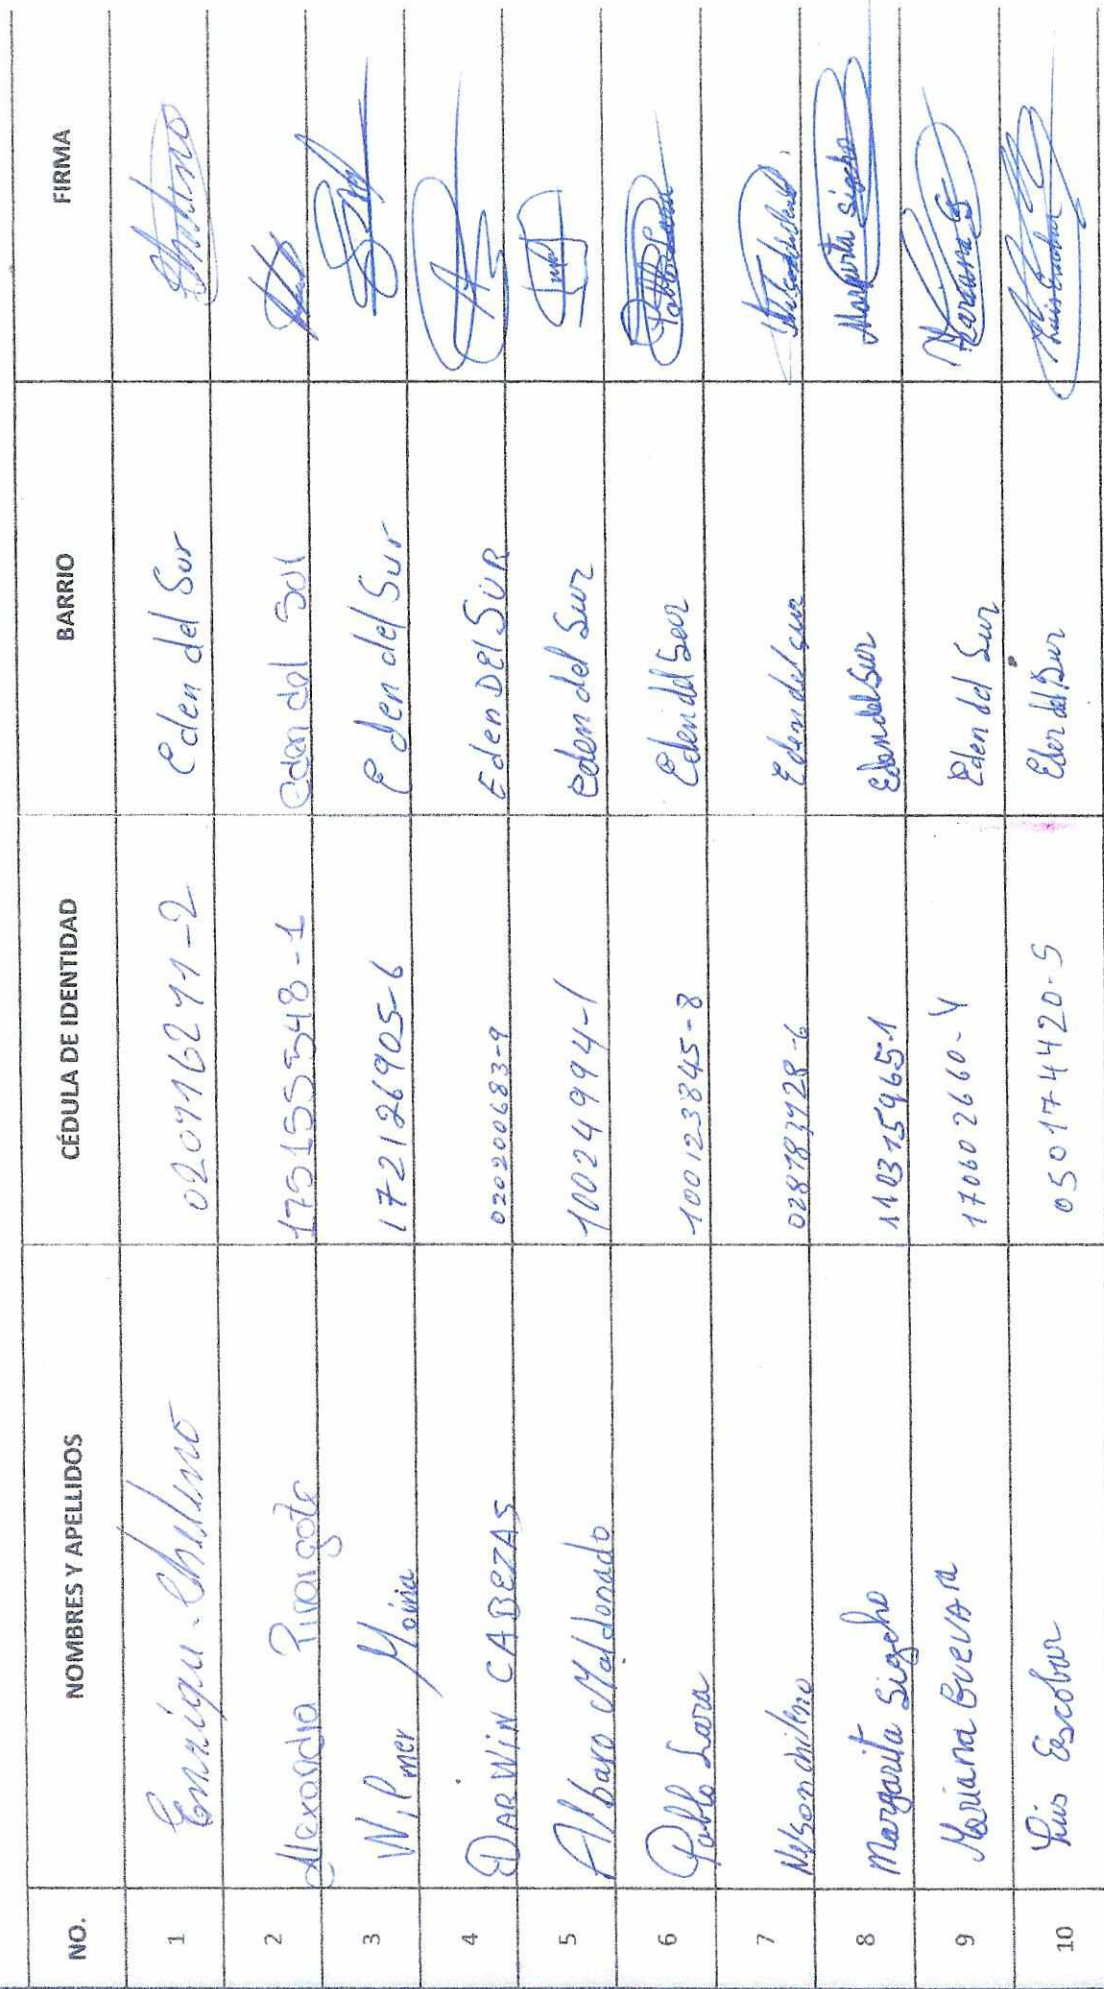 NO. NOMBRES Y APELLIDOS CÉDULA DE IDENTIDAD BARRIO FIRMA
1 Enrique Chileno Eden del Sur
2 Alexandra 175155548-1 eden del Sur
3 Wilmer 172126905-6 Eden del Sur
4 DARWIN CABEZAS 020200683-9 Eden DEl SUR
5 Albaro Maldonado 100249994-1 Eden del Sur
6 Pablo Lara 100123845-8 Eden del Sur Pablo Lara
7 Nelson chileno Eden del sur
8 Margarita Sigcho 110315965-1 Eden del Sur Margarita Sigcho
9 Mariana GUEVARA 170602660-4 Eden del Sur Mariana G
10 Luis Escobar 050174420-5 Eden del Sur Luis Escobar